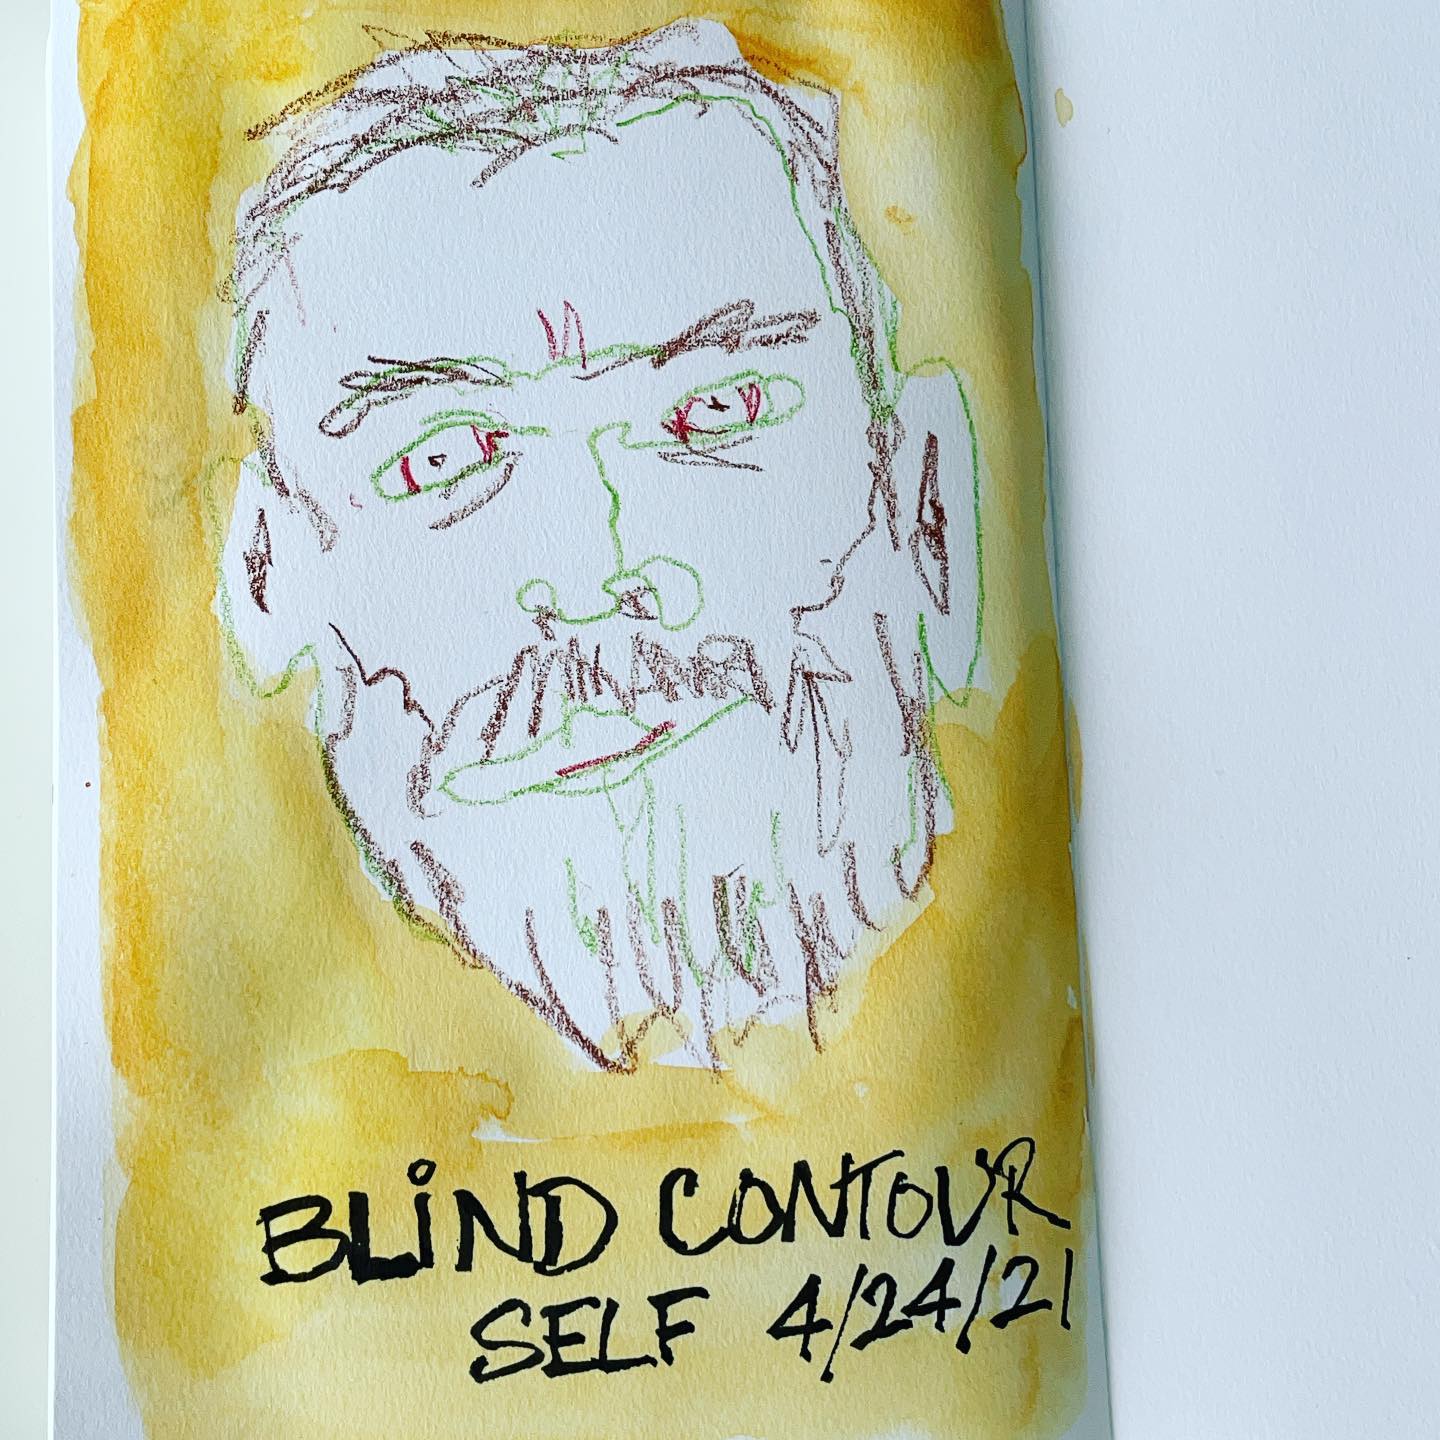 BLiND CONTOUR
SELF 4/24/21